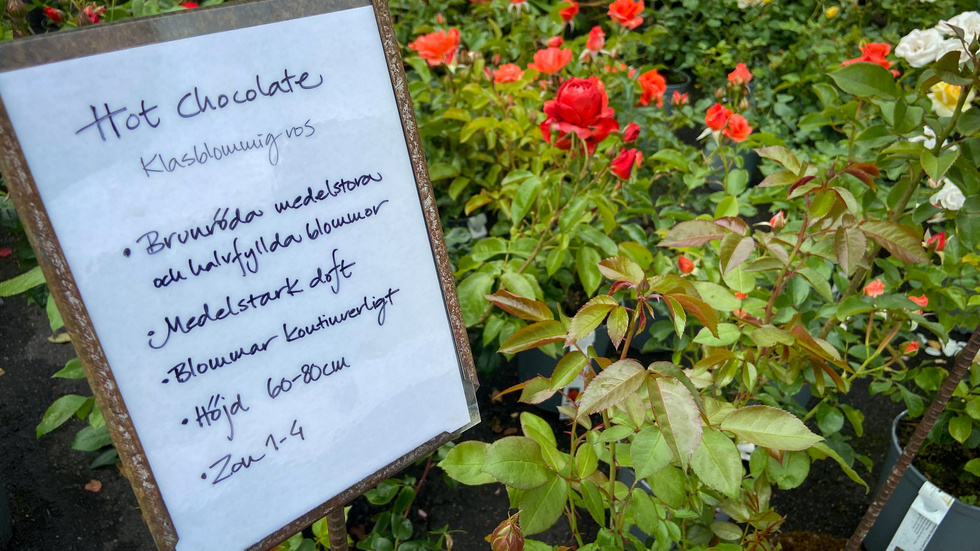 Hot Chocolate
Klasblommig ros
• Brunröda medelstora
och halvfyllda blommor
• Medelstark doft
• Blommar kontinuerligt
• Höjd 60-80cm
• Zon 1-4